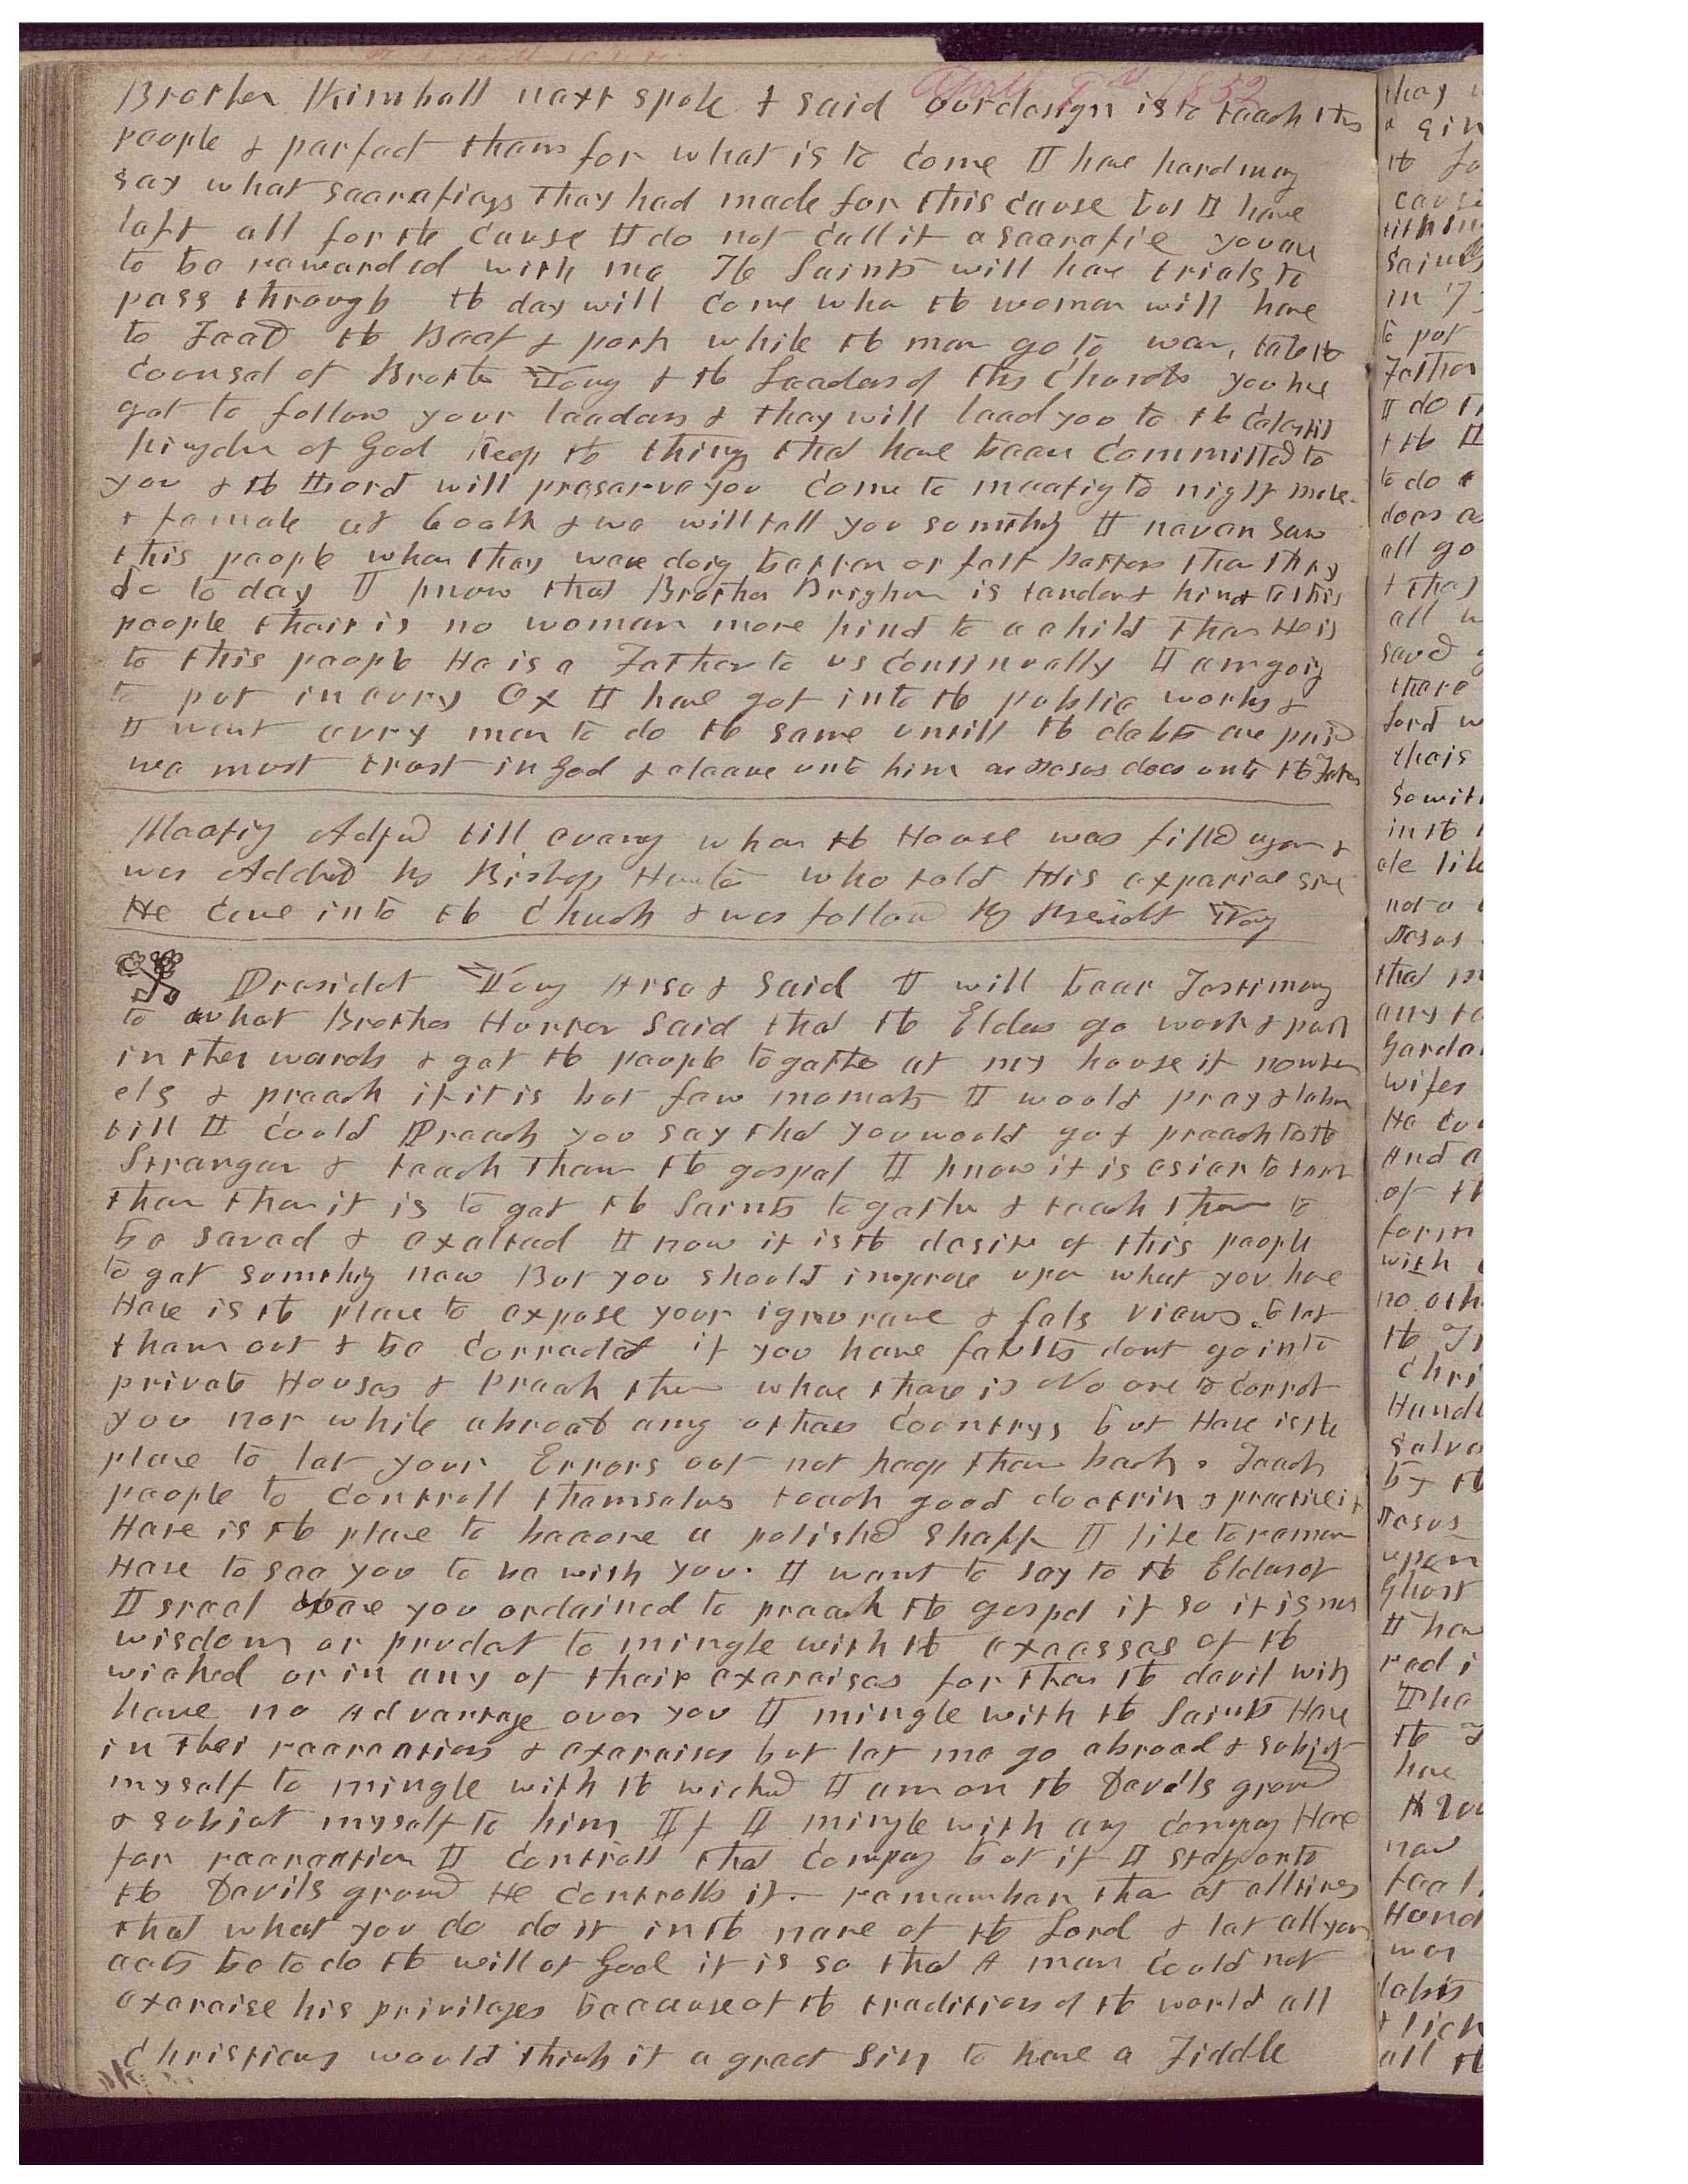 April 9th 1852
Brother Kimball next spoke & said our design is to teach this
people & perfect them for what is to come I have hard many
say what sacrafices they had made for this cause but I have
left all for the cause I do not call it a sacrafice you are
to be rewarded with me The Saints will have trials to
pass through the day will come when the women will have
to Feed the Beef & pork while the men go to war, take the
Counsel of Brother Young & the Leaders of this Church you have
got to follow your leaders & they will lead you to the Celestial
kingdom of God keep the things that have been Committed to
you & the Lord will preserve you Come to meeting to night male
& female at 6 oclk & we will tell you something I never saw
this people when they were doing better or felt better than they
do to day I know that Brother Brigham is tender & kind to this
people their is no woman more kind to a child than He is
to this people He is a Father to us continually I am going
to put in evry Ox I have got into the public works &
I want evry man to do the same untill the debts are paid
we must trust in God & cleave unto him as Jesus does unto the Father
Meeting Adjd till evening when the House was filled again &
was Addressed by Bishop Hunter who told His experience since
He came into the Church & was followed by President Young
President Young Arose & said I will bear Testimony
to what Brother Hunter said that the Elders go work & push
in ther wards & get the people together at my house if nowhere
els & preach if it is but few moments I would pray & labor
till I could Preach you say that you would go & preach to the
Stranger & teach them the gospel I know it is easier to turn
them than it is to get the Saints together & teach them to
be saved & exalted I now it is the desire of this people
to get something new But you should improve upon what you have
Here is the place to expose your ignorance & fals views to let
them out & be Corrected if you have faults dont go into
private Houses & Preach them where there is No one to Correct
you nor while abroad amg other Countrys but Here is the
place to let your Errors out not keep them back. Teach
people to Controll themselves teach good doctrin & practice it
Here is the place to become a polished shaft I like to remain
Here to see you to be with you. I want to say to the Elders of
Israel are you ordained to preach the gospel if so it is not
wisdom or prudent to mingle with the excesses of the
wicked or in any of their exercises for then the devil will
have no advantage over you I mingle with the Saints Here
in their recreations & exercises but let me go abroad & subject
myself to mingle with the wicked I am on the Devils ground
& subject myself to him If I mingle with any Company Here
for recreation I controll that Company but if I step onto
the Devils ground He controlls it. remember then at all times
that what you do do it in the name of the Lord & let all your
acts be to do the will of God it is so that A man could not
exercise his privileges because of the traditions of the world all
Christians would think it a great sin to have a Fiddle